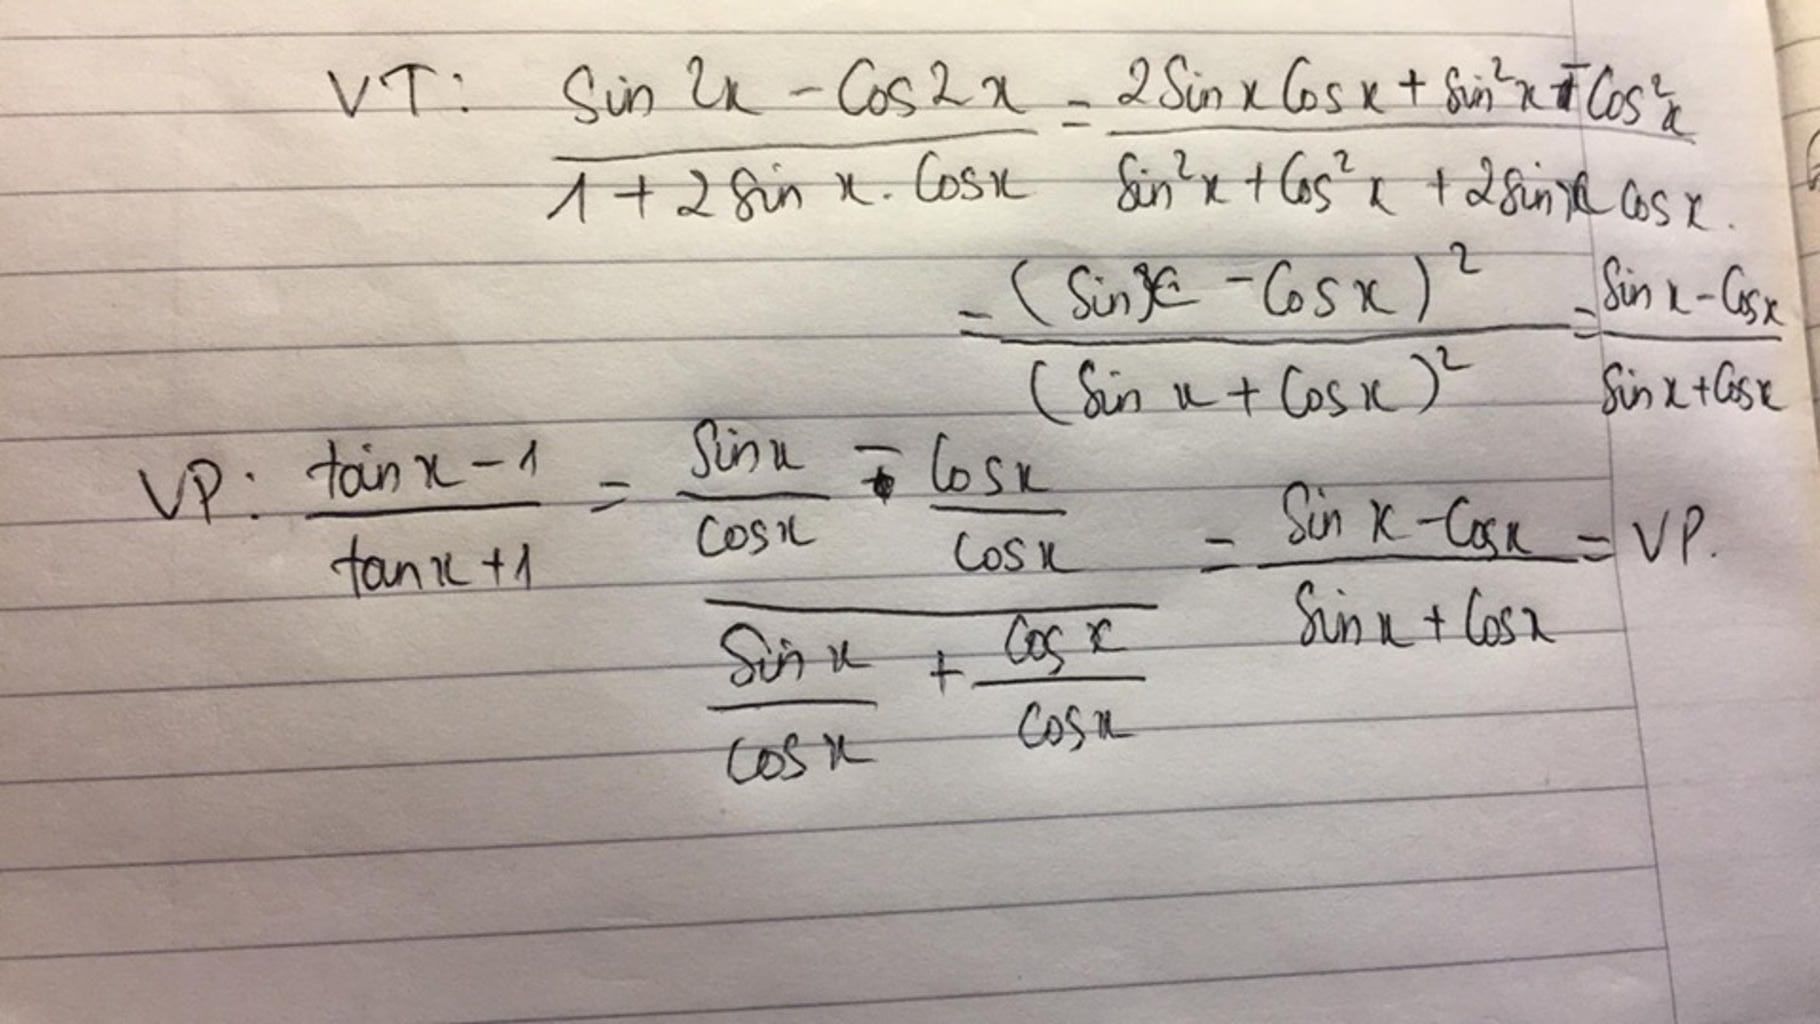 VT: (Sin 2x - Cos2x)/(1 + 2 Sin x. Cosx) = (2 Sin x Cos x + Sin²x - Cos²x)/(Sin²x + Cos²x + 2 Sinx Cos x.)
= (Sinx - Cosx)²/(Sin x + Cosx)² = (Sin x - Cosx)/(Sin x + Cosx)
VP: (tan x - 1)/(tanx + 1) = (Sinx/Cosx - Cosx/Cosx)/(Sin x/Cosx + Cosx/Cosx) = (Sin x - Cosx)/(Sin x + Cosx) = VP.